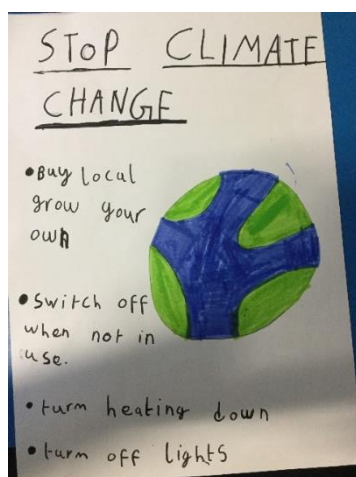 STOP CLIMATE
CHANGE
• Buy local
grow your
own
• Switch off
when not in
use.
• turn heating down
• turn off lights